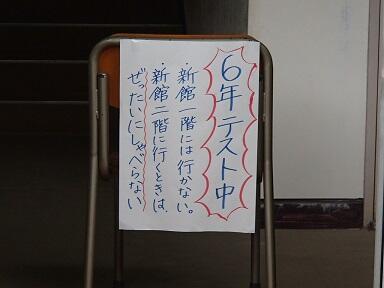 6年テスト中
・新館一階には行かない。
・新館二階に行くときは、
ぜったいにしゃべらない